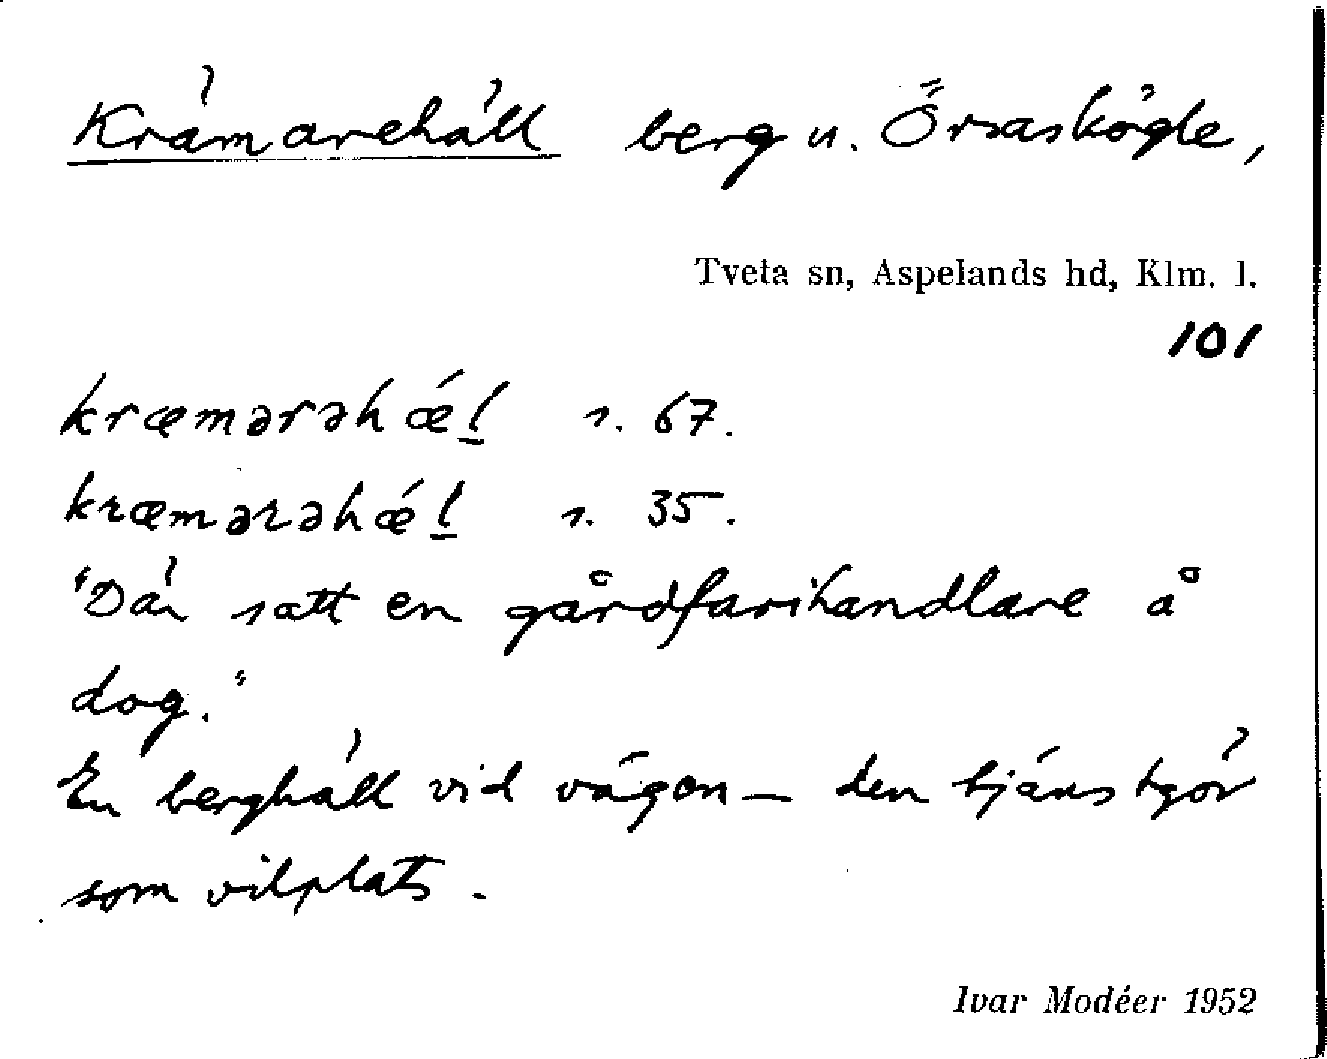 Krämarehäll berg u. Örsaskögle,
Tveta sn, Aspelands hd, Klm. l.
101
kræmərəhǽl̠ s. 67.
kræmərəhǽl̠ s. 35.
"Där satt en gårdfarihandlare å
dog."
En berghäll vid vägen — den tjänstgör
som vilplats.
Ivar Modéer 1952